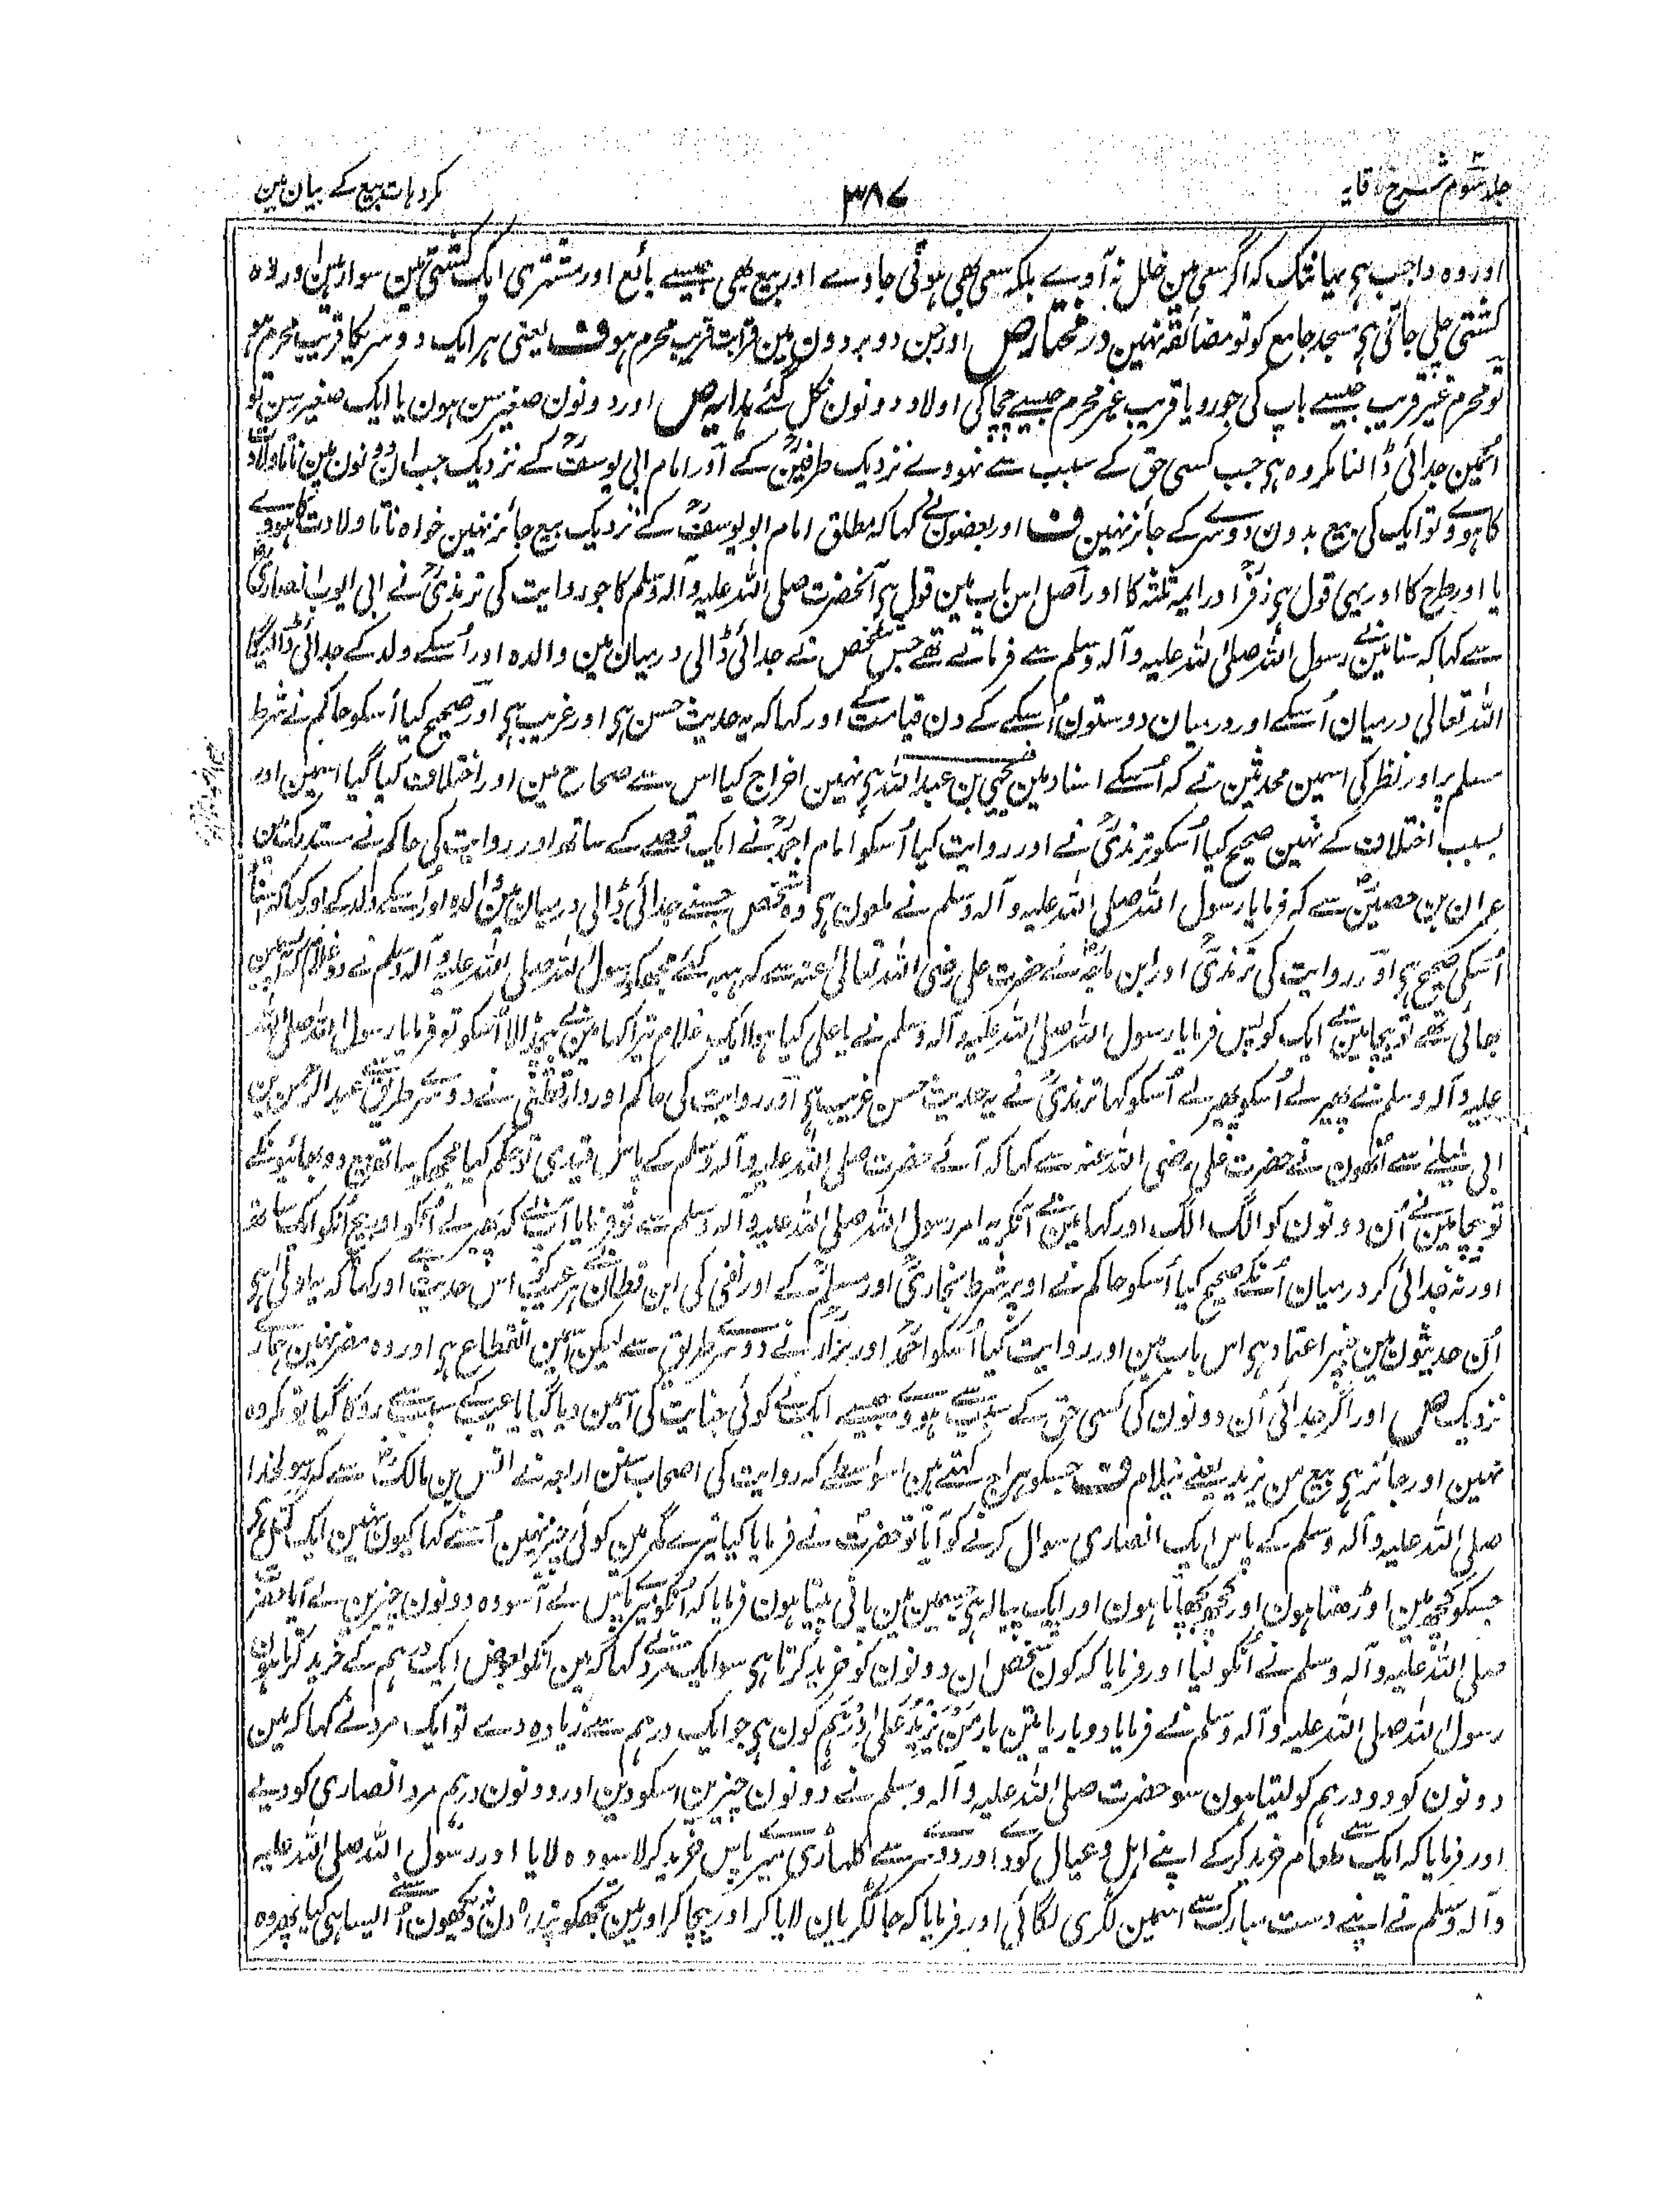 جلد سوم شرح وقایہ
۳۸۷
مکروہات بیع کے بیان مین
اور وہ واجب ہی یہانتک کہ اگر سعی مین خلل نہ آوے بلکہ سعی بھی ہوتی جاوے اور بیع بھی جیسے بائع اور مشتری ایک کشتی مین سوار ہین اور وہ
کشتی چلی جاتی ہی مسجد جامع کو تو مضائقہ نہین در مختار ص اور جن دو بردون مین قرابت قریب محرم ہو ف یعنی ہر ایک دوسریکا قریب محرم ہو
تو محرم غیر قریب جیسے باپ کی جورو یا قریب غیر محرم جیسے چچا کی اولاد دونون نکل گئے ہدایہ ص اور دونون صغیر سن ہون یا ایک صغیر سن تو
اُنمین جدائی ڈالنا مکروہ ہی جب کسی حق کے سبب سے نہووے نزدیک طرفینؒ کے اور امام ابی یوسفؒ کے نزدیک جب ان دونون مین ناتا ولادت
کا ہووے تو ایک کی بیع بدون دوسرے کے جائز نہین ف اور بعضون نے کہا کہ مطلق امام ابو یوسفؒ کے نزدیک بیع جائز نہین خواہ ناتا ولادت کا ہووے
یا اور طرح کا اور یہی قول ہی زفرؒ اور ایمہ ثلثہ کا اور اصل اس باب مین قول ہی آنحضرت صلی اللہ علیہ وآلہ وسلم کا جو روایت کی ترمذیؒ نے ابی ایوب انصاریؓ
سے کہا کہ سنا مینے رسول اللہ صلی اللہ علیہ وآلہ وسلم سے فرماتے تھے جس شخص نے جدائی ڈالی درمیان مین والدہ اور اُسکے ولد کے جدائی ڈالیگا
اللہ تعالی درمیان اُسکے اور درمیان دوستون اُسکے کے دن قیامت کے اور کہا کہ یہ حدیث حسن ہی اور غریب ہی اور صحیح کیا اُسکو حاکم نے شرط
مسلم پر اور نظر کی اسمین محدثین نے کہ اُسکے اسناد مین حیی بن عبد اللہ ہی نہین اخراج کیا اس سے صحاح مین اور اختلاف کیا گیا اسمین اور
بسبب اختلاف کے نہین صحیح کیا اُسکو ترمذیؒ نے اور روایت کیا اُسکو امام احمدؒ نے ایک قصے کے ساتھ اور روایت کی حاکم نے مستدرک مین
عمران بن حصینؓ سے کہ فرمایا رسول اللہ صلی اللہ علیہ وآلہ وسلم نے ملعون ہی وہ شخص جسنے جدائی ڈالی درمیان مین والدہ اور اُسکے ولد کے اور کہا کہ اسناد
اُسکی صحیح ہی اور روایت کی ترمذیؒ اور ابن ماجہؒ نے حضرت علی رضی اللہ تعالیٰ عنہ سے کہ ہبہ کئے مجھکو رسول اللہ صلی اللہ علیہ وآلہ وسلم نے دو غلام کہ آپسمین
بھائی تھے تو بیچا مینے ایک کو پس فرمایا رسول اللہ صلی اللہ علیہ وآلہ وسلم نے یا علی کیا ہوا ایک غلام تیرا کہا مینے بیچ ڈالا اُسکو تو فرمایا رسول اللہ صلی اللہ
علیہ وآلہ وسلم نے پھیر لے اُسکو پھیر لے اُسکو کہا ترمذیؒ نے یہ حدیث حسن غریب ہی اور روایت کی حاکم اور دارقطنی نے دوسرے طریق سے عبد الرحمن بن
ابی لیلے سے اُنھون نے حضرت علی رضی اللہ عنہ سے کہا کہ آئے حضرت صلی اللہ علیہ وآلہ وسلم کے پاس قیدی تو حکم کیا مجھکو ساتھ بیع دو بھائیونکے
تو بیچا مینے اُن دونون کو الگ الگ اور کہا مینے آنکر یہ امر رسول اللہ صلی اللہ علیہ وآلہ وسلم سے تو فرمایا آپنے کہ پھیر لے اُنکو اور بیچ اُنکو ایک ساتھ
اور نہ جدائی کر درمیان اُنکے صحیح کیا اُسکو حاکم نے اوپر شرط بخاریؒ اور مسلمؒ کے اور نفی کی ابن قطانؒ نے ہر عیب کی اس حدیث سے اور کہا کہ یہ اولیٰ ہی
اُن حدیثون مین جنپر اعتماد ہی اس باب مین اور روایت کیا اُسکو احمدؒ اور بزارؒ نے دوسرے طریق سے لیکن اسمین انقطاع ہی اور وہ مضر نہین ہمارے
نزدیک ص اور اگر جدائی اُن دونون کی کسی حق کے سبب سے ہووے جیسے ایک نے کوئی جنایت کی اسمین دیا گیا یا عیب کے سبب سے رو کا گیا تو مکروہ
نہین اور جائز ہی بیع من یزید یعنے نیلام ف جسکو ہراج کہتے ہین اسواسطے کہ روایت کی اصحاب سنن اربعہ نے انس بن مالکؓ سے کہ رسولخدا
صلی اللہ علیہ وآلہ وسلم کے پاس ایک انصاری سوال کرنے کو آیا تو حضرتؐ نے فرمایا کیا تیرے گھر مین کوئی چیز نہین اُسنے کہا کیون نہین ایک کمل ہی
جسکو کچھ مین اوڑھتا ہون اور کچھ بچھاتا ہون اور ایک پیالہ ہی جسمین مین پانی پیتا ہون فرمایا کہ اُنکو میرے پاس لے آ سو وہ دونون چیزین لے آیا حضرت
صلی اللہ علیہ وآلہ وسلم نے اُنکو لیا اور فرمایا کہ کون شخص ان دونون کو خرید کرتا ہی سو ایک مرد نے کہا کہ مین انکو بعوض ایک درہم کے خرید کرتا ہون
رسول اللہ صلی اللہ علیہ وآلہ وسلم نے فرمایا دو بار یا تین بار مَنْ یَزِیْدُ عَلیٰ دِرْہَمٍ کون ہی جو ایک درہم سے زیادہ دے تو ایک مرد نے کہا کہ مین
دونون کو دو درہم کو لیتا ہون سو حضرت صلی اللہ علیہ وآلہ وسلم نے دونون چیزین اسکو دین اور دونون درہم مرد انصاری کو دیے
اور فرمایا کہ ایک سے طعام خرید کرکے اپنے اہل و عیال کو دے اور دوسرے سے کلہاڑی میرے پاس خرید کر لا سو وہ لایا اور رسول اللہ صلی اللہ علیہ
وآلہ وسلم نے اپنے دست مبارک سے اسمین لکڑی لگائی اور فرمایا کہ جا لکڑیان لایا کر اور بیچا کر اور مین تجھکو پندرہ دن نہ دیکھون اُسنے ایسا ہی کیا پھر وہ